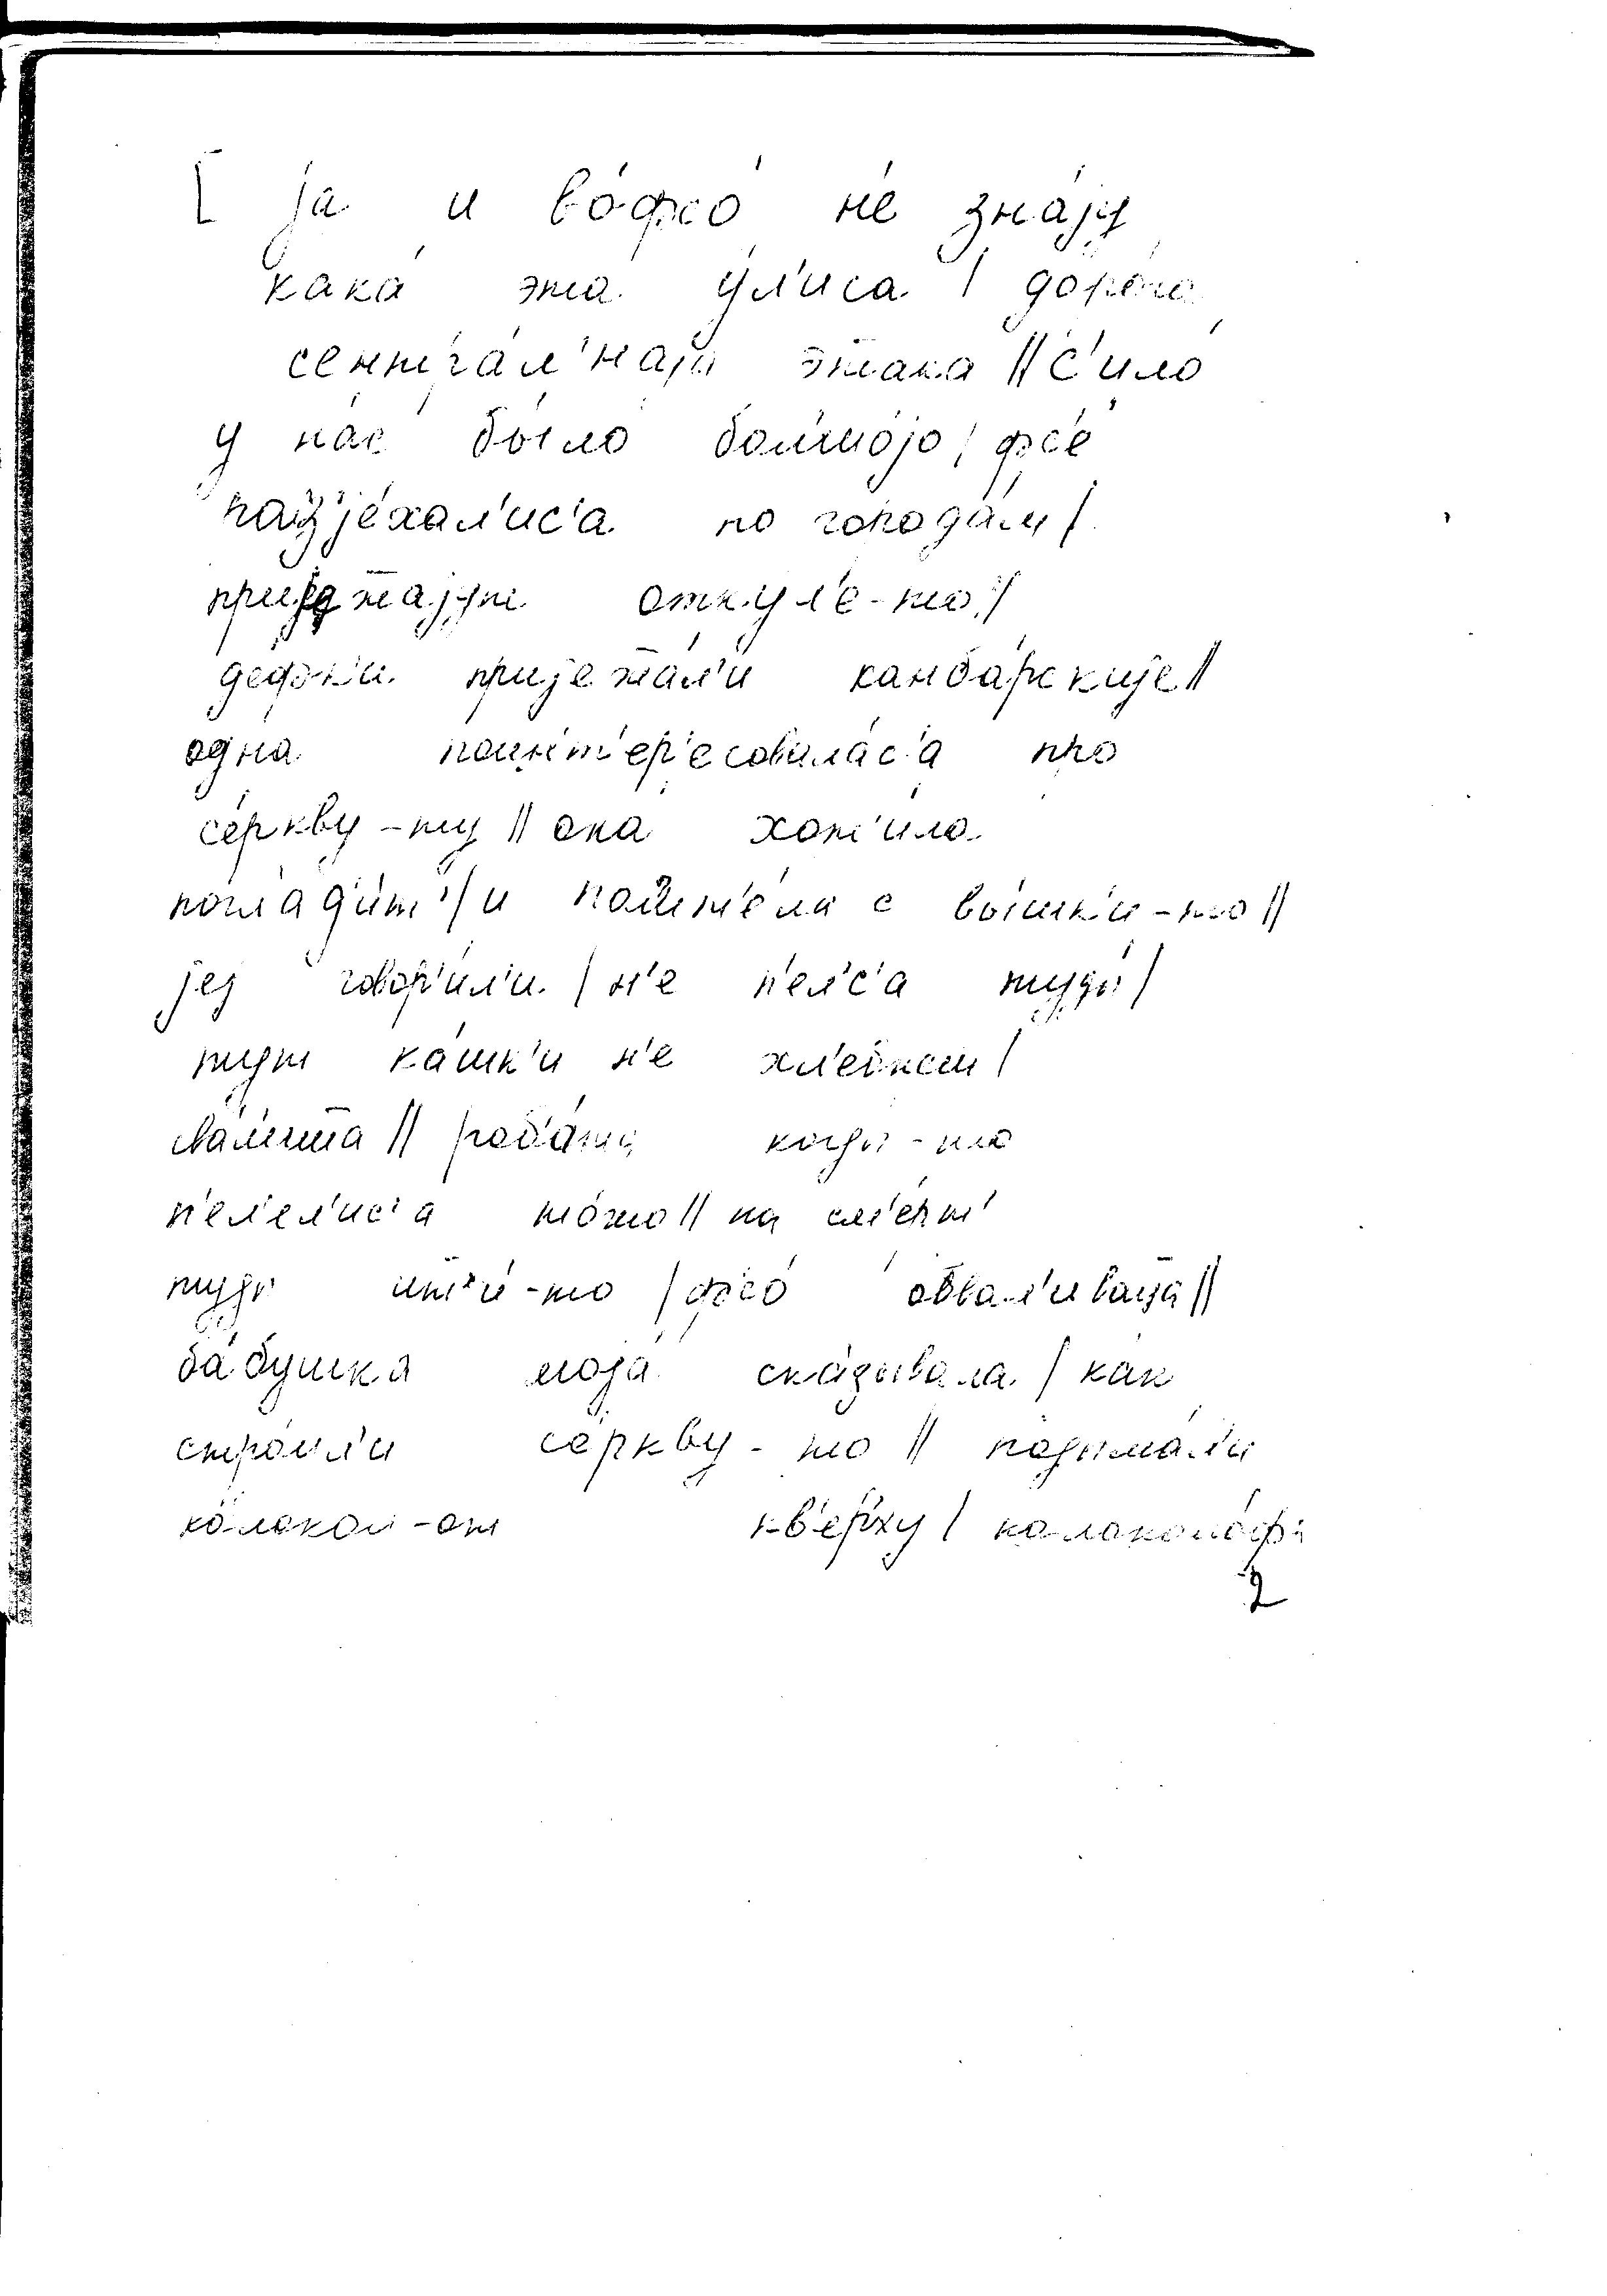 [ ja и во́фсо́ н'е зна́jу
кака́ эта у́л'иса | доро́га
сентра́л'наjа э̄така || с'ило́
у нас бы́ло бол'шо́jо | фс'е
разjе́хал'ис'а по города́м |
откул'е-то |
де́фк'и приjежа́л'и канба́рскиjе ||
одна́ поинт'ер'есовала́с'а про
се́ркву-ту || она хот'и́ла
погл'ад'и́т' | и пол'ит'е́ла с вы́шк'и-то ||
jеj говор'и́л'и | н'е п'е́л'с'а туды́ |
тут ка́шк'и н'е хл'ебн'ош |
сва́л'исса || роб'а́та когды́-то
п'ел'ел'ис'а то́жо || на см'е́рт'
туды́ ит'т'и́-то | фс'о́ обва́л'иваца ||
ба́бушка моjа́ ска́зывала | как
стро́ил'и се́ркву-то || подыма́л'и
ко́локол-от кв'ерху́ | колокола́
2